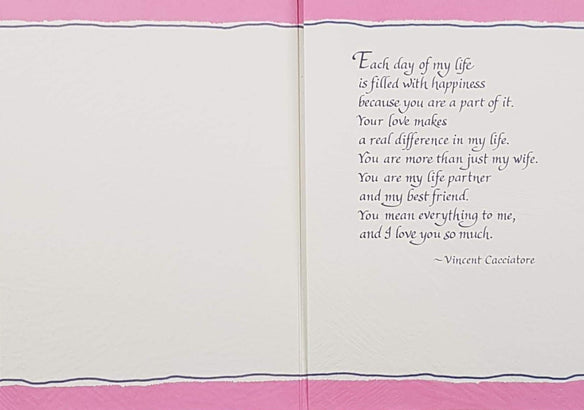 Each day of my life
is filled with happiness
because you are a part of it.
Your love makes
a real difference in my life.
You are more than just my wife.
You are my life partner
and my best friend.
You mean everything to me,
and I love you so much.
~Vincent Cacciatore